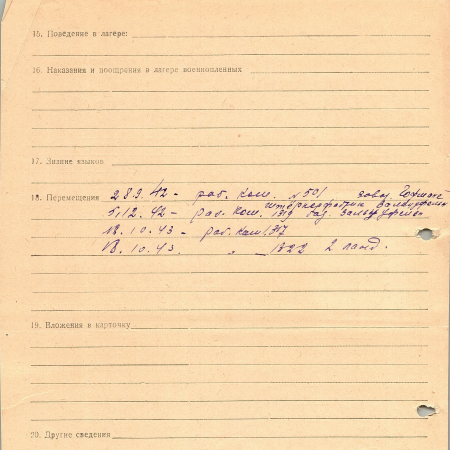 15. Поведение в лагере:
16. Наказания и поощрения в лагере военнопленных
17. Знание языков
18. Перемещения 28.9.42 – раб. ком. №501 завод
5.12.42 – раб. ком. 1319
10.43 – раб. ком. 317
10.43. " – 1322 2
19. Вложения в карточку
20. Другие сведения